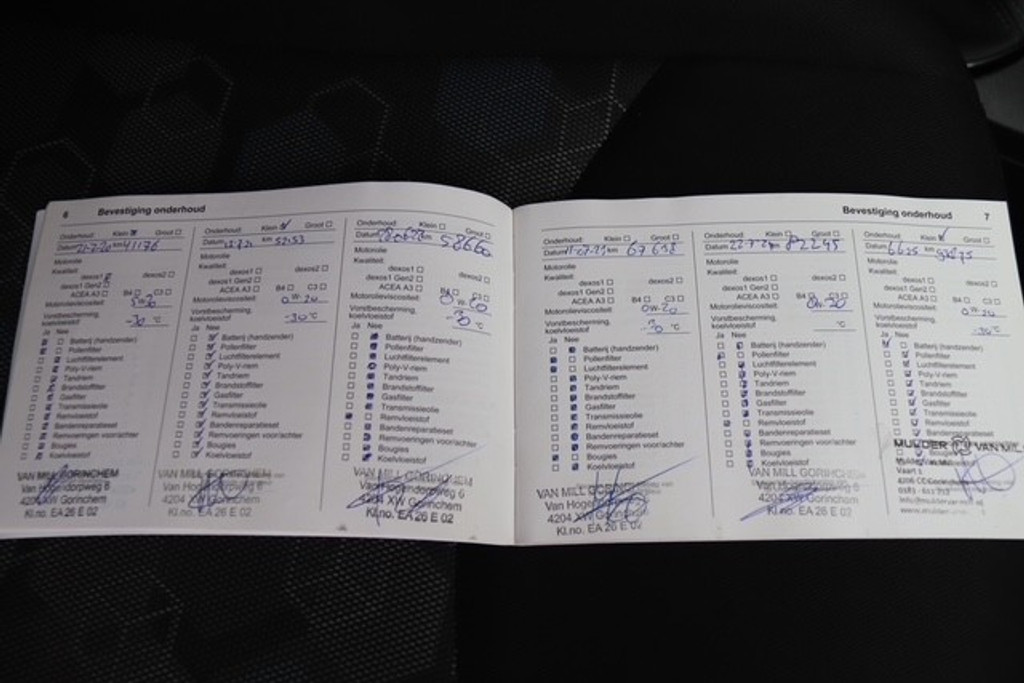 6 Bevestiging onderhoud
Onderhoud: Klein Groot
Datum 21-7-20 km 41176
Motorolie
Kwaliteit:
dexos1 dexos2
dexos1 Gen2
ACEA A3 B4 C3
Motorolieviscositeit:
Vorstbescherming, koelvloeistof -30 °C
Ja Nee
Batterij (handzender)
Pollenfilter
Luchtfilterelement
Poly-V-riem
Tandriem
Brandstoffilter
Gasfilter
Transmissieolie
Remvloeistof
Bandenreparatieset
Remvoeringen voor/achter
Bougies
Koelvloeistof
VAN MILL GORINCHEM
Van Hogendorpweg 6
4204 XW Gorinchem
Kl.no. EA 26 E 02
Onderhoud: Klein Groot
Datum km
Motorolie
Kwaliteit:
dexos1 dexos2
dexos1 Gen2
ACEA A3 B4 C3
Motorolieviscositeit: 0W-20
Vorstbescherming, koelvloeistof -30 °C
Ja Nee
Batterij (handzender)
Pollenfilter
Luchtfilterelement
Poly-V-riem
Tandriem
Brandstoffilter
Gasfilter
Transmissieolie
Remvloeistof
Bandenreparatieset
Remvoeringen voor/achter
Bougies
Koelvloeistof
VAN MILL GORINCHEM
Van Hogendorpweg 6
4204 XW Gorinchem
Kl.no. EA 26 E 02
Onderhoud: Klein Groot
Datum km
Motorolie
Kwaliteit:
dexos1 dexos2
dexos1 Gen2
ACEA A3 B4 C3
Motorolieviscositeit:
Vorstbescherming, koelvloeistof °C
Ja Nee
Batterij (handzender)
Pollenfilter
Luchtfilterelement
Poly-V-riem
Tandriem
Brandstoffilter
Gasfilter
Transmissieolie
Remvloeistof
Bandenreparatieset
Remvoeringen voor/achter
Bougies
Koelvloeistof
VAN MILL GORINCHEM
Van Hogendorpweg 6
4204 XW Gorinchem
Kl.no. EA 26 E 02
Bevestiging onderhoud 7
Onderhoud: Klein Groot
Datum km
Motorolie
Kwaliteit:
dexos1 dexos2
dexos1 Gen2
ACEA A3 B4 C3
Motorolieviscositeit: 0W-20
Vorstbescherming, koelvloeistof °C
Ja Nee
Batterij (handzender)
Pollenfilter
Luchtfilterelement
Poly-V-riem
Tandriem
Brandstoffilter
Gasfilter
Transmissieolie
Remvloeistof
Bandenreparatieset
Remvoeringen voor/achter
Bougies
Koelvloeistof
VAN MILL GORINCHEM
Van Hogendorpweg 6
4204 XW Gorinchem
Kl.no. EA 26 E 02
Onderhoud: Klein Groot
Datum km 82245
Motorolie
Kwaliteit:
dexos1 dexos2
dexos1 Gen2
ACEA A3 B4 C3
Motorolieviscositeit:
Vorstbescherming, koelvloeistof °C
Ja Nee
Batterij (handzender)
Pollenfilter
Luchtfilterelement
Poly-V-riem
Tandriem
Brandstoffilter
Gasfilter
Transmissieolie
Remvloeistof
Bandenreparatieset
Remvoeringen voor/achter
Bougies
Koelvloeistof
VAN MILL GORINCHEM
Van Hogendorpweg 6
4204 XW Gorinchem
Kl.no. EA 26 E 02
Onderhoud: Klein Groot
Datum
Motorolie
Kwaliteit:
dexos1 dexos2
dexos1 Gen2
ACEA A3 B4 C3
Motorolieviscositeit: 0W-20
Vorstbescherming, koelvloeistof -30 °C
Ja Nee
Batterij (handzender)
Pollenfilter
Luchtfilterelement
Poly-V-riem
Tandriem
Brandstoffilter
Gasfilter
Transmissieolie
Remvloeistof
MULDER VAN MILL
Vaart 1